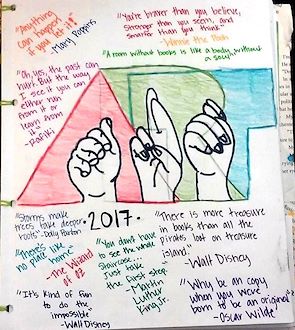 "Anything
can happen
if you let it!"
-Mary Poppins
"You're braver than you believe,
Stronger than you seem, and
Smarter than you think."
-Winnie the Pooh
"A room without books is like a body without
a soul"
"Oh yes, the past can
hurt. But the way
I see it you can
either run
from it or
learn from
it"
-Rafiki
"Storms make
trees take deeper
roots" -Dolly Parton
•2017•
"There is more treasure
in books than all the
pirates loot on treasure
island."
-Walt Disney
"There's
no place like
home"
-The Wizard
of OZ
"You don't have
to see the whole
staircase...
just take
the first step
-Martin
Luther
King Jr.
"It's kind of fun
to do the
impossible"
-Walt Disney
"Why be an copy
when you were
born to be an original"
-Oscar Wilde